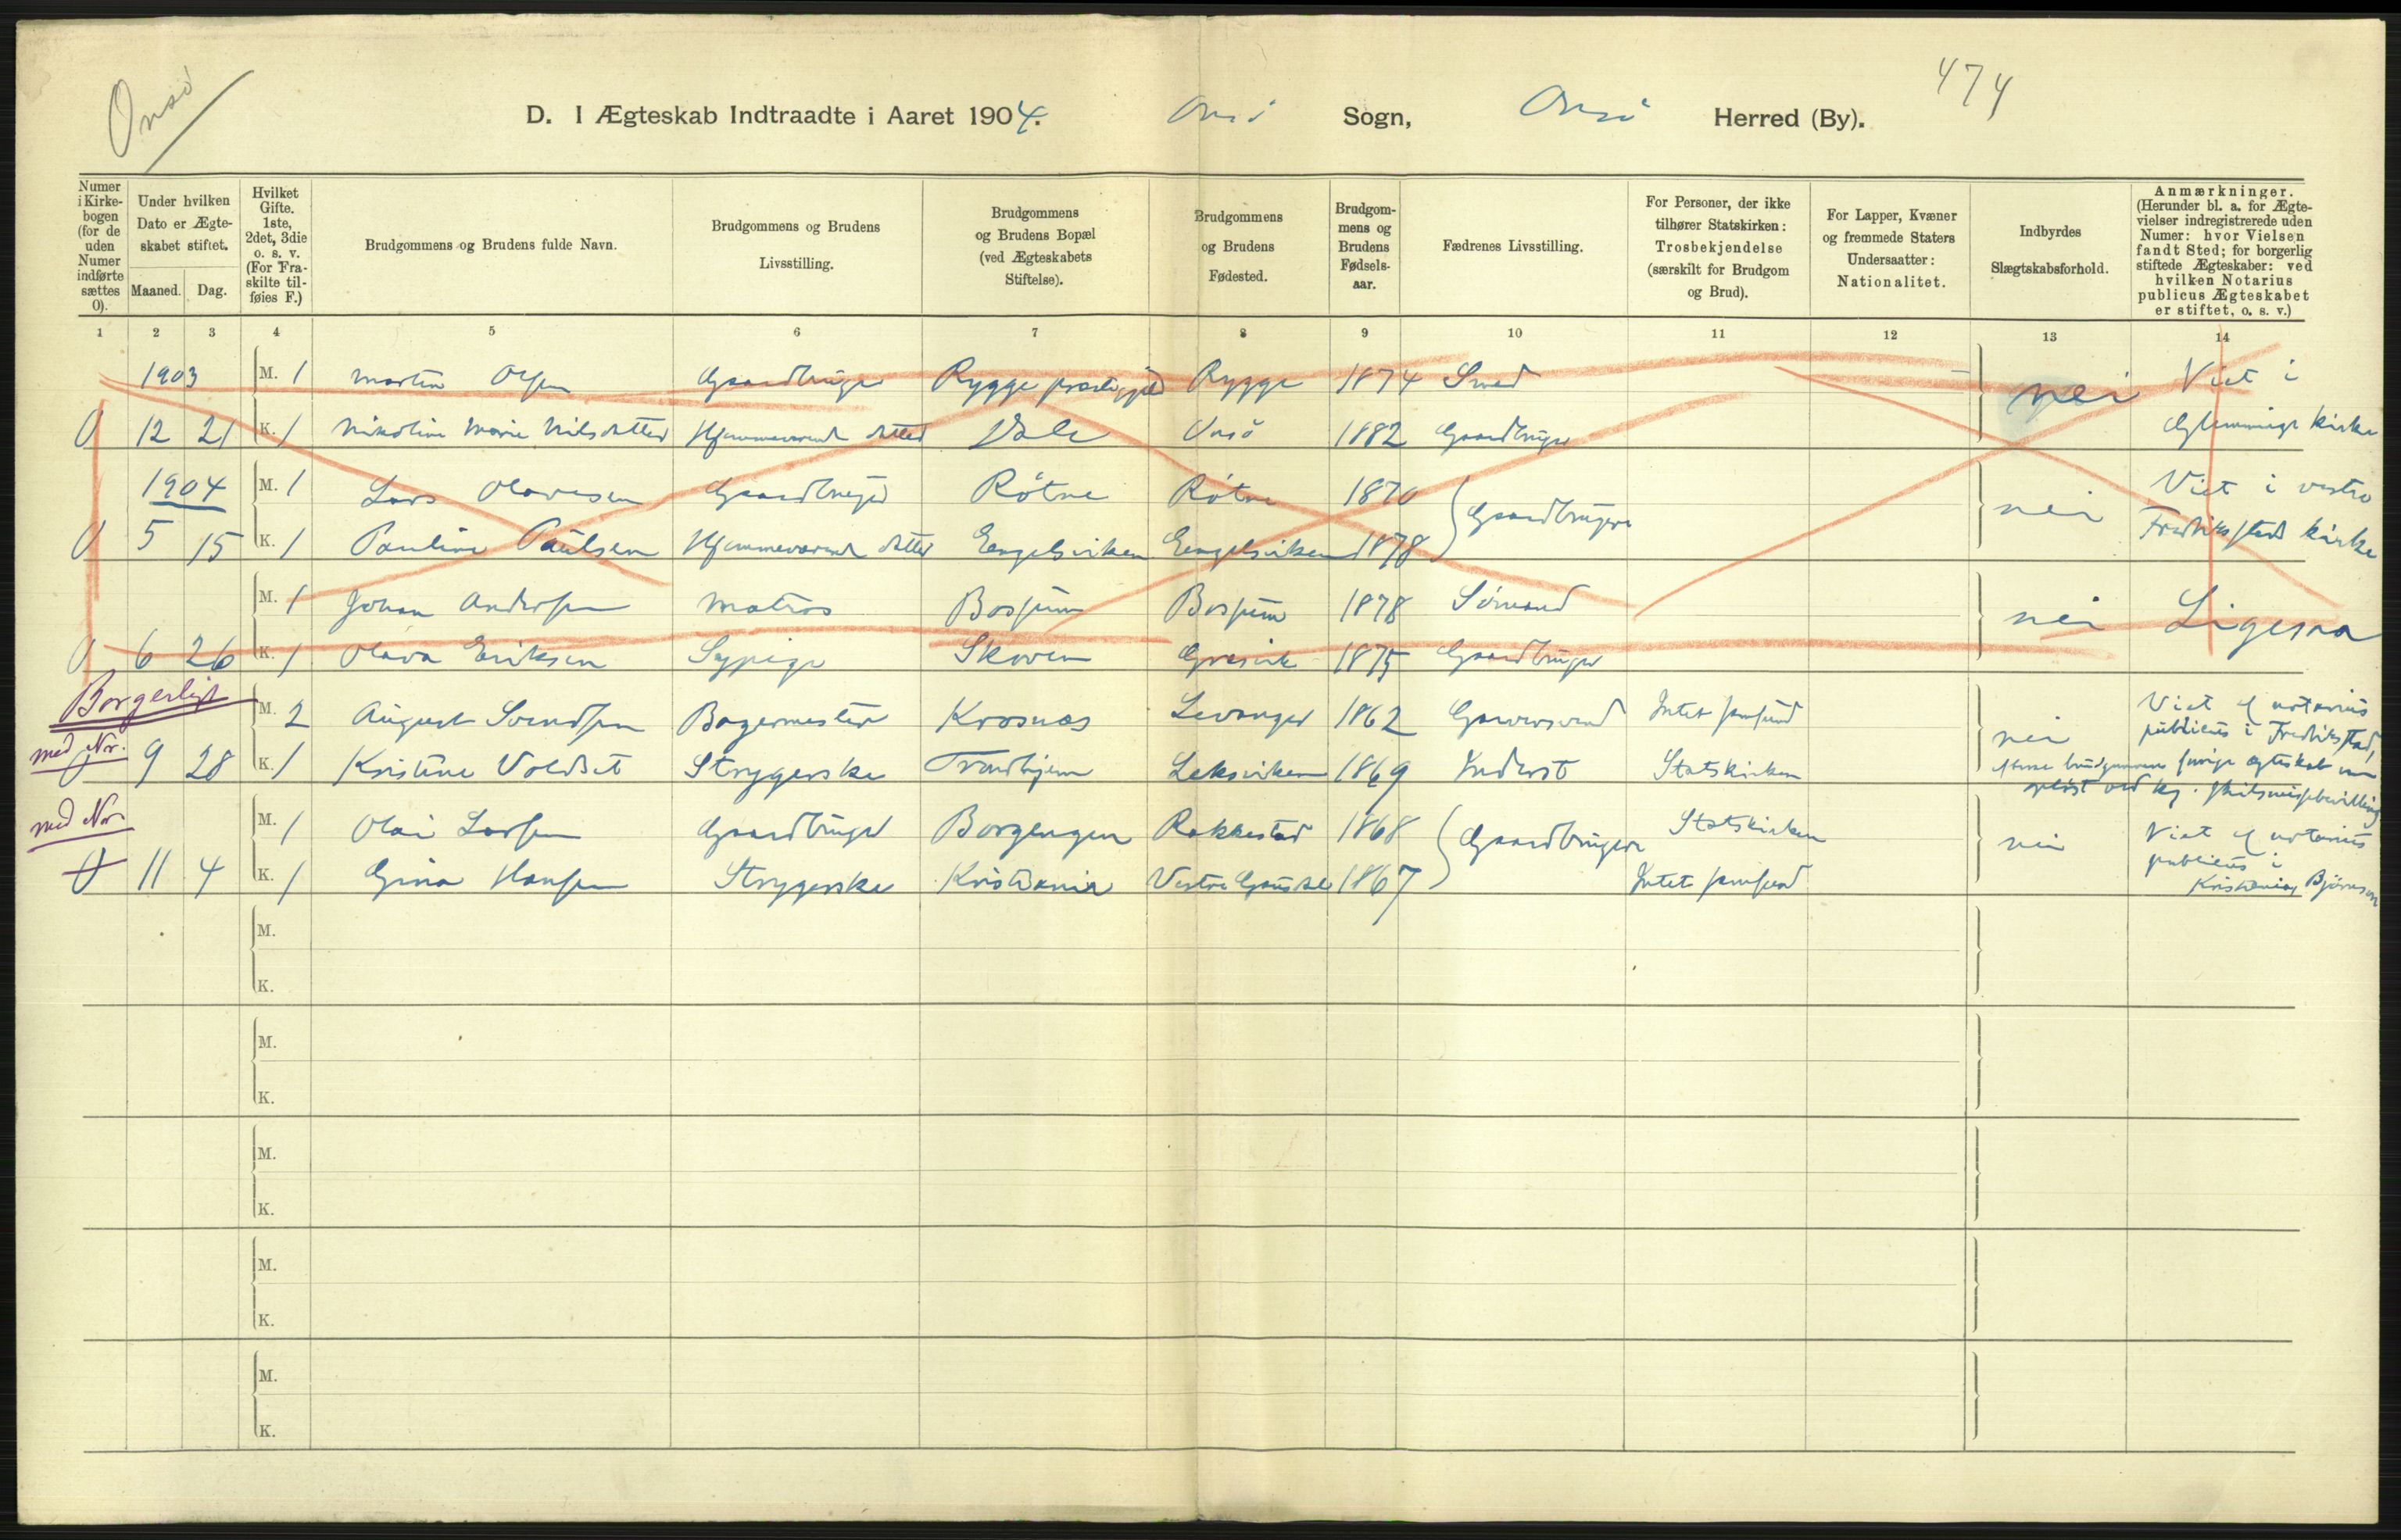 Onsö
474
D. I Ægteskab Indtraadte i Aaret 1904. Onsö Sogn, Onsö Herred (By).
Numer i Kirkebogen (for de uden Numer indførte sættes 0).
Under hvilken Dato er Ægteskabet stiftet.
Maaned. Dag.
Hvilket Gifte. 1ste, 2det, 3die o. s. v. (For Fraskilte tilføies F.)
Brudgommens og Brudens fulde Navn.
Brudgommens og Brudens Livsstilling.
Brudgommens og Brudens Bopæl (ved Ægteskabets Stiftelse).
Brudgommens og Brudens Fødested.
Brudgommens og Brudens Fødselsaar.
Fædrenes Livsstilling.
For Personer, der ikke tilhører Statskirken: Trosbekjendelse (særskilt for Brudgom og Brud).
For Lapper, Kvæner og fremmede Staters Undersaatter: Nationalitet.
Indbyrdes Slægtskabsforhold.
Anmærkninger. (Herunder bl. a. for Ægtevielser indregistrerede uden Numer: hvor Vielsen fandt Sted; for borgerlig stiftede Ægteskaber: ved hvilken Notarius publicus Ægteskabet er stiftet, o. s. v.)
1 2 3 4 5 6 7 8 9 10 11 12 13 14
1903 M. 1 Martin Olsen Gaardbruger Rygge præstegjæld Rygge 1874 Smed nei Viet i
0 12 21 K. 1 Nikoline Marie Nilsdatter Hjemmeværende datter Dale Onsö 1882 Gaardbruger Glemminge kirke
1904 M. 1 Lars Olavesen Gaardbruger Rötne Rötne 1870 Gaardbrugere nei Viet i vestre
0 5 15 K. 1 Pauline Paulsen Hjemmeværende datter Engelsviken Engelsviken 1878 Fredriksstad kirke
M. 1 Johan Andersen Matros Bossum Bossum 1878 Sömand nei Ligesaa
0 6 26 K. 1 Olava Eriksen Sypige Skoven Gresvik 1875 Gaardbruger
Borgerligt M. 2 August Svendsen Bagermester Krosnæs Levanger 1862 Garversvend Intet samfund nei Viet af notarius
med Nr. 0 9 28 K. 1 Kristine Voldset Strygerske Trondhjem Leksviken 1869 Inderst Statskirken publicus i Fredriksstad,
brudgommens forrige ægteskab
oplöst ved kg. skilsmissebevilling
med Nr. M. 1 Olai Larsen Gaardbruger Borgengen Rakkestad 1868 Gaardbrugere Statskirken nei Viet af notarius
0 11 4 K. 1 Gina Hansen Strygerske Kristiania Vestre Gausdal 1867 Intet samfund publicus i
Kristiania, Björnson
M.
K.
M.
K.
M.
K.
M.
K.
M.
K.